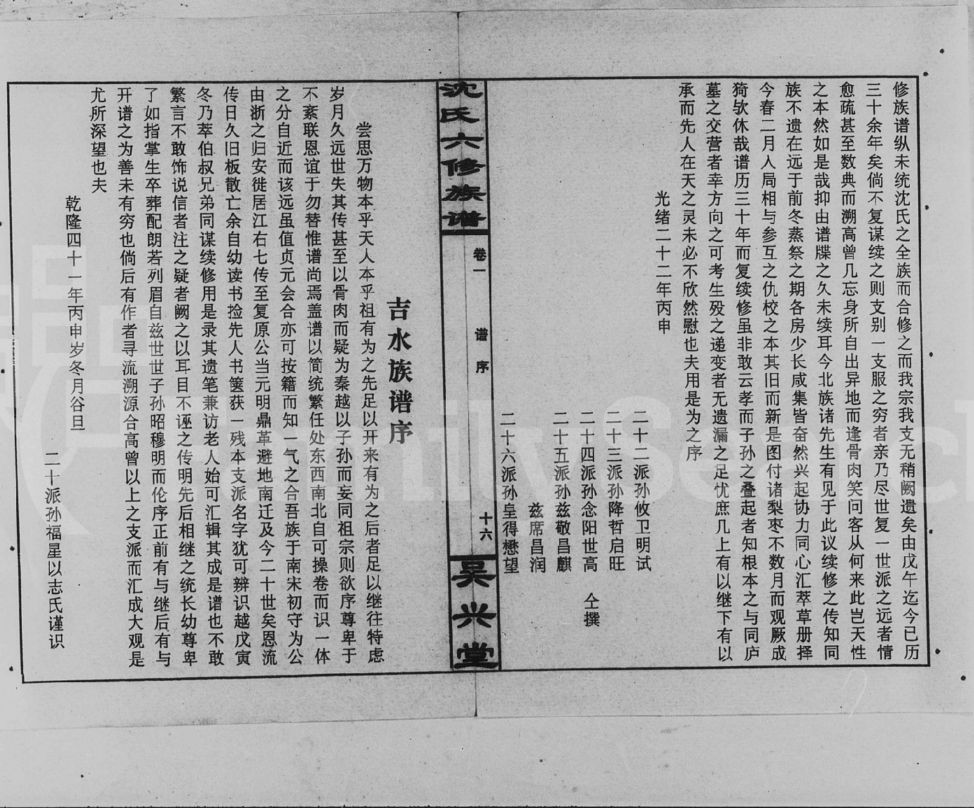 修族谱纵未统沈氏之全族而合修之而我宗我支无稍阙遗矣由戊午迄今已历
三十余年矣倘不复谋续之则支别一支服之穷者亲乃尽世复一世派之远者情
愈疏甚至数典而溯高曾几忘身所自出异地而逢骨肉笑问客从何来此岂天性
之本然如是哉抑由谱牒之久未续耳今北族诸先生有见于此议续修之传知同
族不遗在远于前冬蒸祭之期各房少长咸集皆奋然兴起协力同心汇萃草册择
今春二月人局相与参互之仇校之本其旧而新是图付诸梨枣不数月而观厥成
猗欤休哉谱历三十年而复续修虽非敢云孝而子孙之叠起者知根本之与同庐
墓之交营者幸方向之可考生殁之递变者无遗漏之足忧庶几上有以继下有以
承而先人在天之灵未必不欣然慰也夫用是为之序
光绪二十二年丙申
二十二派孙攸卫明试
二十三派孙降哲启旺
二十四派孙念阳世高 仝撰
二十五派孙兹敬昌麒
兹席昌润
二十六派孙皇得懋望
沈氏六修族谱
卷一
谱序
十六
吴兴堂
吉水族谱序
尝思万物本乎天人本乎祖有为之先足以开来有为之后者足以继往特虑
岁月久远世失其传甚至以骨肉而疑为秦越以子孙而妄同祖宗则欲序尊卑于
不紊联恩谊于勿替惟谱尚焉盖谱以简统繁任处东西南北自可操卷而识一体
之分自近而该远虽值贞元会合亦可按籍而知一气之合吾族于南宋初守为公
由浙之归安徙居江右七传至复原公当元明鼎革避地南迁及今二十世矣恩流
传日久旧板散亡余自幼读书捡先人书箧获一残本支派名字犹可辨识越戊寅
冬乃萃伯叔兄弟同谋续修用是录其遗笔兼访老人始可汇辑其成是谱也不敢
繁言不敢饰说信者注之疑者阙之以耳目不诬之传明先后相继之统长幼尊卑
了如指掌生卒葬配朗若列眉自兹世世子孙昭穆明而伦序正前有与继后有与
开谱之为善未有穷也倘后有作者寻流溯源合高曾以上之支派而汇成大观是
尤所深望也夫
乾隆四十一年丙申岁冬月谷旦
二十派孙福星以志氏谨识